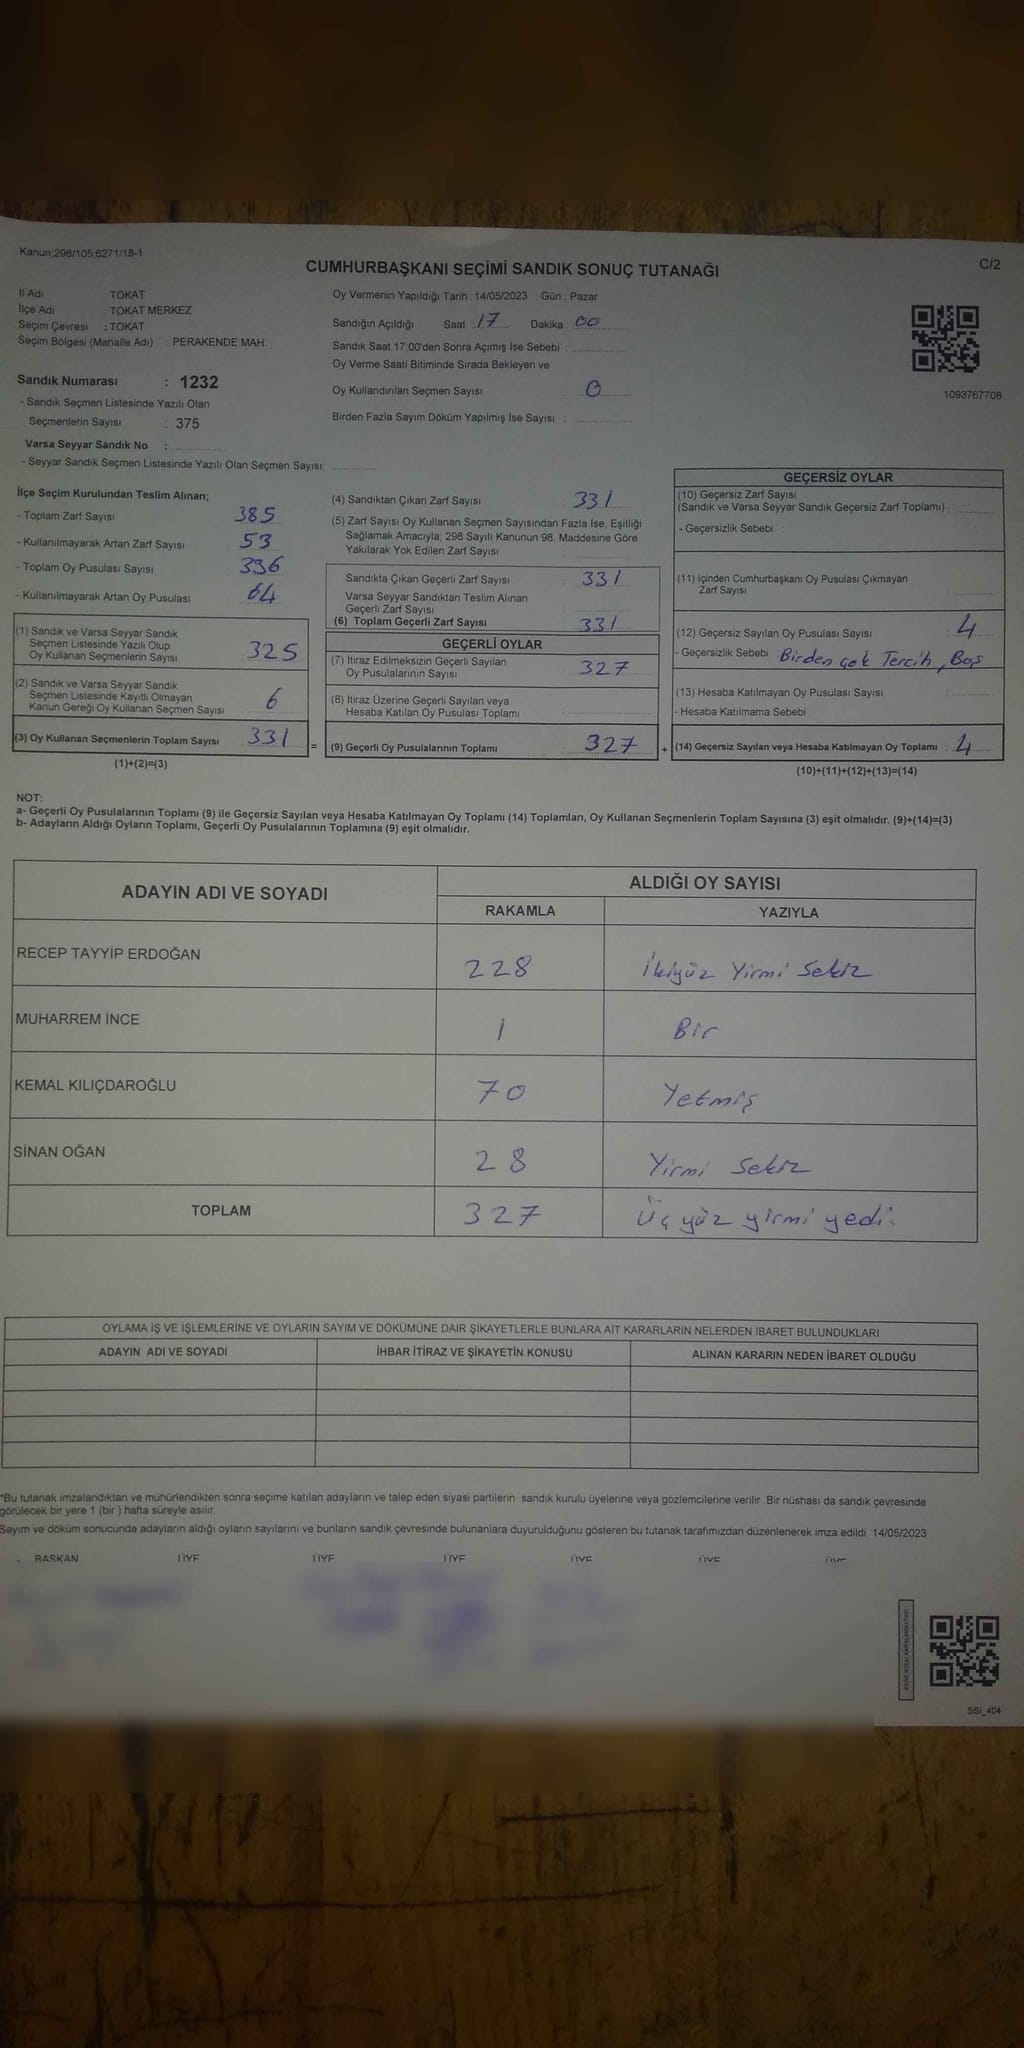 Kanun;298/105;6271/18-1
C/2
CUMHURBAŞKANI SEÇİMİ SANDIK SONUÇ TUTANAĞI
İl Adı : TOKAT
İlçe Adı : TOKAT MERKEZ
Seçim Çevresi : TOKAT
Seçim Bölgesi (Mahalle Adı) : PERAKENDE MAH.
Sandık Numarası : 1232
- Sandık Seçmen Listesinde Yazılı Olan
Seçmenlerin Sayısı : 375
Varsa Seyyar Sandık No :
- Seyyar Sandık Seçmen Listesinde Yazılı Olan Seçmen Sayısı:
Oy Vermenin Yapıldığı Tarih : 14/05/2023 Gün : Pazar
Sandığın Açıldığı Saat : 17 Dakika : 00
Sandık Saat 17:00'den Sonra Açımış İse Sebebi :
Oy Verme Saati Bitiminde Sırada Bekleyen ve
Oy Kullandırılan Seçmen Sayısı : 0
Birden Fazla Sayım Döküm Yapılmış İse Sayısı :
1093767708
İlçe Seçim Kurulundan Teslim Alınan;
- Toplam Zarf Sayısı 385
- Kullanılmayarak Artan Zarf Sayısı 53
- Toplam Oy Pusulası Sayısı 396
- Kullanılmayarak Artan Oy Pusulası 64
(1) Sandık ve Varsa Seyyar Sandık
Seçmen Listesinde Yazılı Olup
Oy Kullanan Seçmenlerin Sayısı 325
(2) Sandık ve Varsa Seyyar Sandık
Seçmen Listesinde Kayıtlı Olmayan
Kanun Gereği Oy Kullanan Seçmen Sayısı 6
(3) Oy Kullanan Seçmenlerin Toplam Sayısı 331 =
(1)+(2)=(3)
(4) Sandıktan Çıkan Zarf Sayısı 331
(5) Zarf Sayısı Oy Kullanan Seçmen Sayısından Fazla İse, Eşitliği
Sağlamak Amacıyla; 298 Sayılı Kanunun 98. Maddesine Göre
Yakılarak Yok Edilen Zarf Sayısı
Sandıkta Çıkan Geçerli Zarf Sayısı 331
Varsa Seyyar Sandıktan Teslim Alınan
Geçerli Zarf Sayısı
(6) Toplam Geçerli Zarf Sayısı 331
GEÇERLİ OYLAR
(7) İtiraz Edilmeksizin Geçerli Sayılan
Oy Pusulalarının Sayısı 327
(8) İtiraz Üzerine Geçerli Sayılan veya
Hesaba Katılan Oy Pusulası Toplamı
(9) Geçerli Oy Pusulalarının Toplamı 327 +
GEÇERSİZ OYLAR
(10) Geçersiz Zarf Sayısı
(Sandık ve Varsa Seyyar Sandık Geçersiz Zarf Toplamı) :
- Geçersizlik Sebebi :
(11) İçinden Cumhurbaşkanı Oy Pusulası Çıkmayan
Zarf Sayısı
(12) Geçersiz Sayılan Oy Pusulası Sayısı : 4
- Geçersizlik Sebebi Birden çok Tercih, Boş
(13) Hesaba Katılmayan Oy Pusulası Sayısı :
- Hesaba Katılmama Sebebi :
(14) Geçersiz Sayılan veya Hesaba Katılmayan Oy Toplamı : 4
(10)+(11)+(12)+(13)=(14)
NOT:
a- Geçerli Oy Pusulalarının Toplamı (9) ile Geçersiz Sayılan veya Hesaba Katılmayan Oy Toplamı (14) Toplamları, Oy Kullanan Seçmenlerin Toplam Sayısına (3) eşit olmalıdır. (9)+(14)=(3)
b- Adayların Aldığı Oyların Toplamı, Geçerli Oy Pusulalarının Toplamına (9) eşit olmalıdır.
ADAYIN ADI VE SOYADI ALDIĞI OY SAYISI
RAKAMLA YAZIYLA
RECEP TAYYİP ERDOĞAN 228 İkiyüz Yirmi Sekiz
MUHARREM İNCE 1 Bir
KEMAL KILIÇDAROĞLU 70 Yetmiş
SİNAN OĞAN 28 Yirmi Sekiz
TOPLAM 327 Üçyüz yirmi yedi.
OYLAMA İŞ VE İŞLEMLERİNE VE OYLARIN SAYIM VE DÖKÜMÜNE DAİR ŞİKAYETLERLE BUNLARA AİT KARARLARIN NELERDEN İBARET BULUNDUKLARI
ADAYIN ADI VE SOYADI İHBAR İTİRAZ VE ŞİKAYETİN KONUSU ALINAN KARARIN NEDEN İBARET OLDUĞU
*Bu tutanak imzalandıktan ve mühürlendikten sonra seçime katılan adayların ve talep eden siyasi partilerin sandık kurulu üyelerine veya gözlemcilerine verilir. Bir nüshası da sandık çevresinde
görülecek bir yere 1 (bir) hafta süreyle asılır.
Sayım ve döküm sonucunda adayların aldığı oyların sayılarını ve bunların sandık çevresinde bulunanlara duyurulduğunu gösteren bu tutanak tarafımızdan düzenlenerek imza edildi. 14/05/2023
BAŞKAN ÜYE ÜYE ÜYE ÜYE ÜYE ÜYE
SSI_404